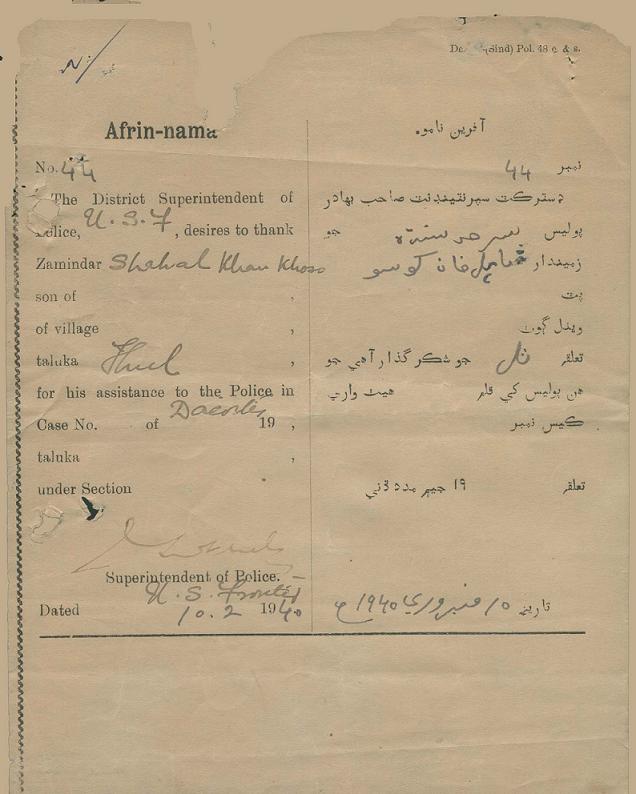 De (Sind) Pol. 48 c. & s.
Afrin-nama
No. 44
The District Superintendent of
Police, U. S. F , desires to thank
Zamindar Shahal Khan Khoso
son of ,
of village ,
taluka Thul ,
for his assistance to the Police in
Case No. of 19 ,
taluka ,
under Section
Superintendent of Police.
U. S. Frontier
Dated 10. 2 1940
آفرين نامو.
نمبر 44
دسترڪت سپرنٽينڊنٽ صاحب بهادر
پوليس سرحد سنڌ جو
زميندار خان کوسو
پٽ
ويٺل ڳوٺ
تعلقر ٺل جو شڪر گذار آهي جو
هن پوليس کي قلم هيٺ واري
ڪيس نمبر
تعلقر ١٩ جيم مدد ڏني
تاريخ ١٠ فيبروري ١٩٤٠ع